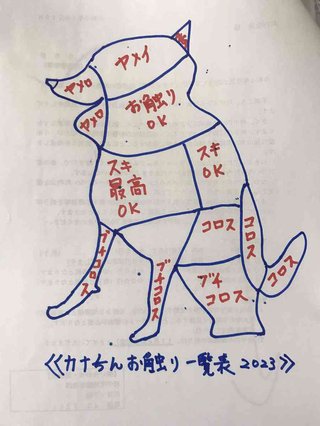 ヤメイ
ヤメロ
ヤメロ
お触り
OK
スキ
最高
OK
スキ
OK
コロス
コロス
コロス
ブチコロス
ブチコロス
ブチ
コロス
《カナちんお触り一覧表 2023》